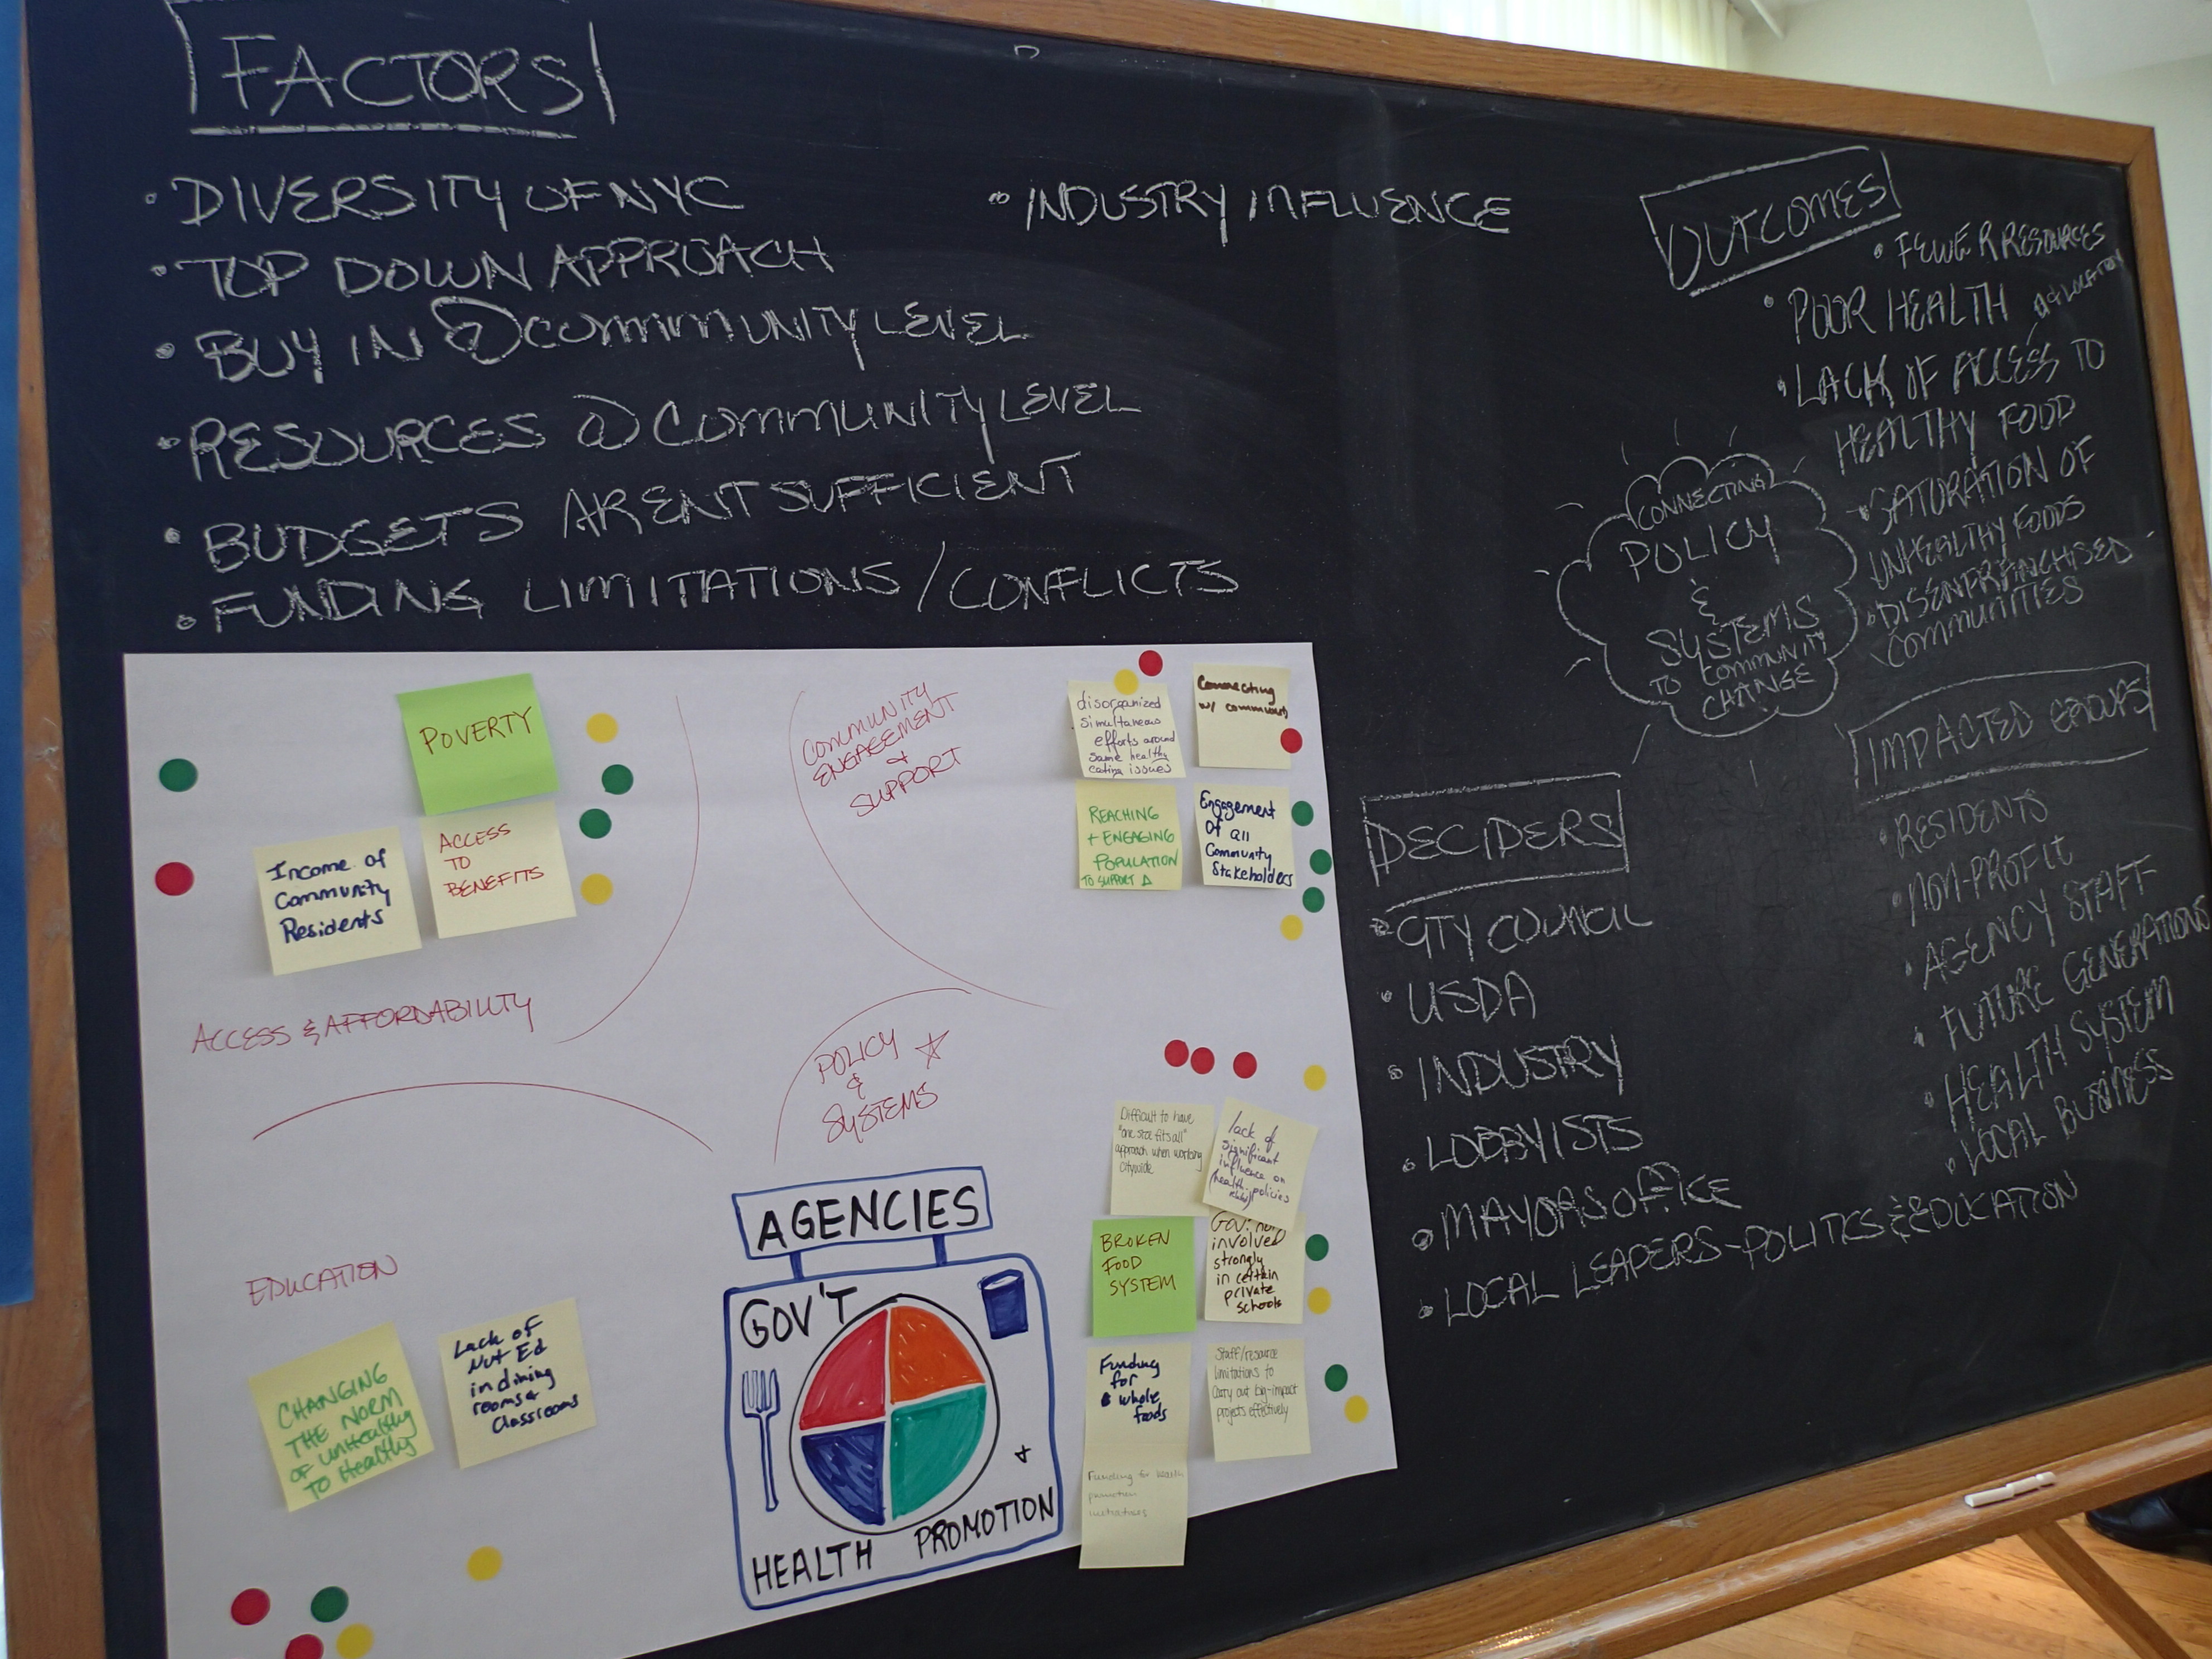 FACTORS
• DIVERSITY OF NYC
• TOP DOWN APPROACH
• BUY IN @ COMMUNITY LEVEL
• RESOURCES @ COMMUNITY LEVEL
• BUDGETS ARENT SUFFICIENT
• FUNDING LIMITATIONS / CONFLICTS
• INDUSTRY INFLUENCE
OUTCOMES
• FEWER RESOURCES
• POOR HEALTH
• LACK OF ACCESS TO
HEALTHY FOOD
• SATURATION OF
UNHEALTHY FOODS
• DISENFRANCHISED
COMMUNITIES
CONNECTING
POLICY
&
SYSTEMS
TO COMMUNITY
CHANGE
IMPACTED GROUPS
• RESIDENTS
• NON-PROFIT
• AGENCY STAFF
• FUTURE GENERATIONS
• HEALTH SYSTEM
• LOCAL BUSINESS
DECIDERS
• CITY COUNCIL
• USDA
• INDUSTRY
• LOBBYISTS
• MAYORS OFFICE
• LOCAL LEADERS-POLITICS & EDUCATION
POVERTY
Income of
Community
Residents
ACCESS
TO
BENEFITS
ACCESS & AFFORDABILITY
COMMUNITY
ENGAGEMENT
+
SUPPORT
disorganized
simultaneous
efforts around
same healthy
eating issues
Connecting
w/ community
REACHING
+ ENGAGING
POPULATION
TO SUPPORT Δ
Engagement
of all
Community
Stakeholders
POLICY ☆
&
SYSTEMS
Difficult to have
"one size fits all"
approach when working
citywide
lack of
significant
influence on
(health-policies
related)
BROKEN
FOOD
SYSTEM
Gov. not
involved
strongly
in certain
private
schools
Funding
for
whole
foods
Staff/resource
limitations to
carry out big-impact
projects effectively
Funding for health
promotion
initiatives
EDUCATION
CHANGING
THE NORM
OF UNHealthy
TO Healthy
Lack of
Nut Ed
in dining
rooms &
Classrooms
AGENCIES
GOV'T
+
HEALTH PROMOTION